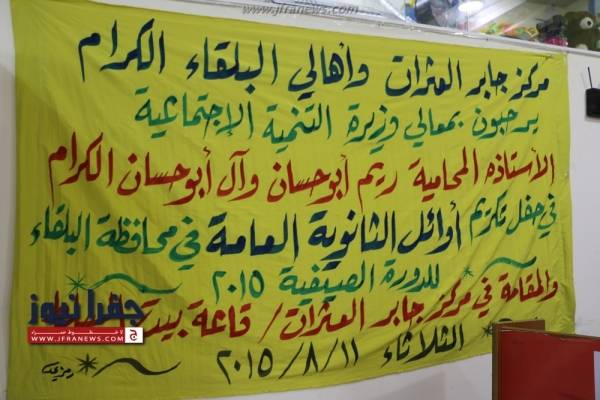 www.jfranews.com
مركز جابر العثرات وأهالي البلقاء الكرام
يرحبون بمعالي وزيرة التنمية الإجتماعية
الأستاذه المحامية ريم أبوحسان وآل أبوحسان الكرام
في حفل تكريم أوائل الثانوية العامة في محافظة البلقاء
للدورة الصيفية ٢٠١٥
والمقامة في مركز جابر العثرات / قاعة بيت
الثلاثاء ٢٠١٥/٨/١١
رمزي
جفرا نيوز
لا خطوط حمراء
WWW.JFRANEWS.COM